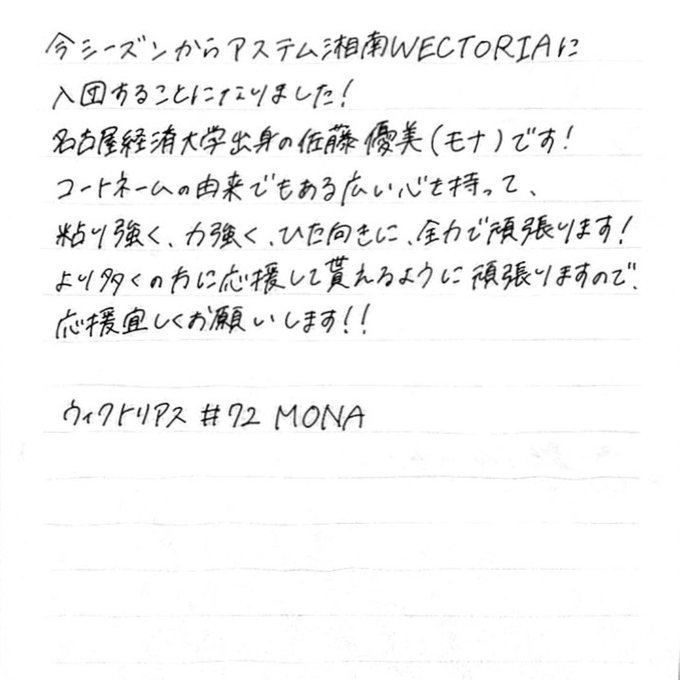 今シーズンからアステム湘南VECTORIAに
入団することになりました!
名古屋経済大学出身の佐藤優美(モナ)です!
コートネームの由来でもある広い心を持って、
粘り強く、力強く、ひた向きに、全力で頑張ります!
より多くの方に応援して貰えるように頑張りますので、
応援宜しくお願いします!!
ウィクトリアス #72 MONA